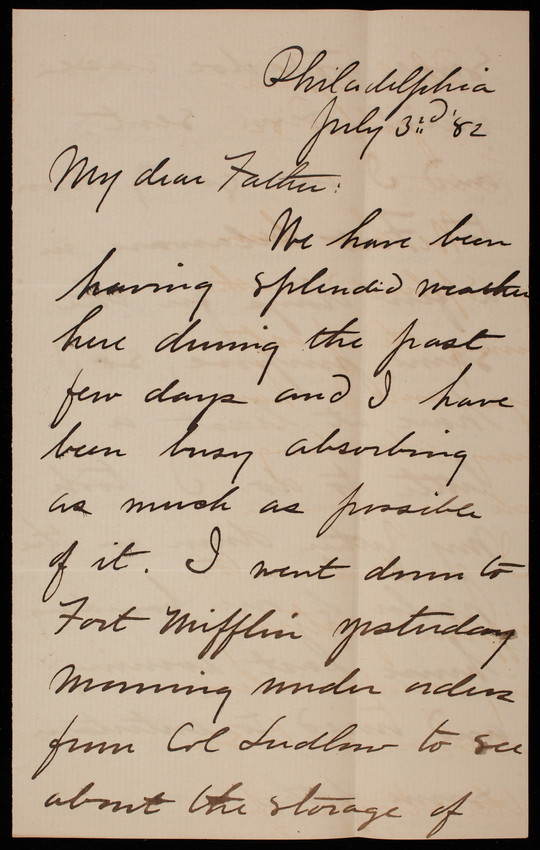 Philadelphia
July 3rd '82
My dear Father:
We have been
having splendid weather
here during the past
few days and I have
been busy absorbing
as much as possible
of it. I went down to
Fort Mifflin yesterday
morning under orders
from Col Ludlow to see
about the storage of